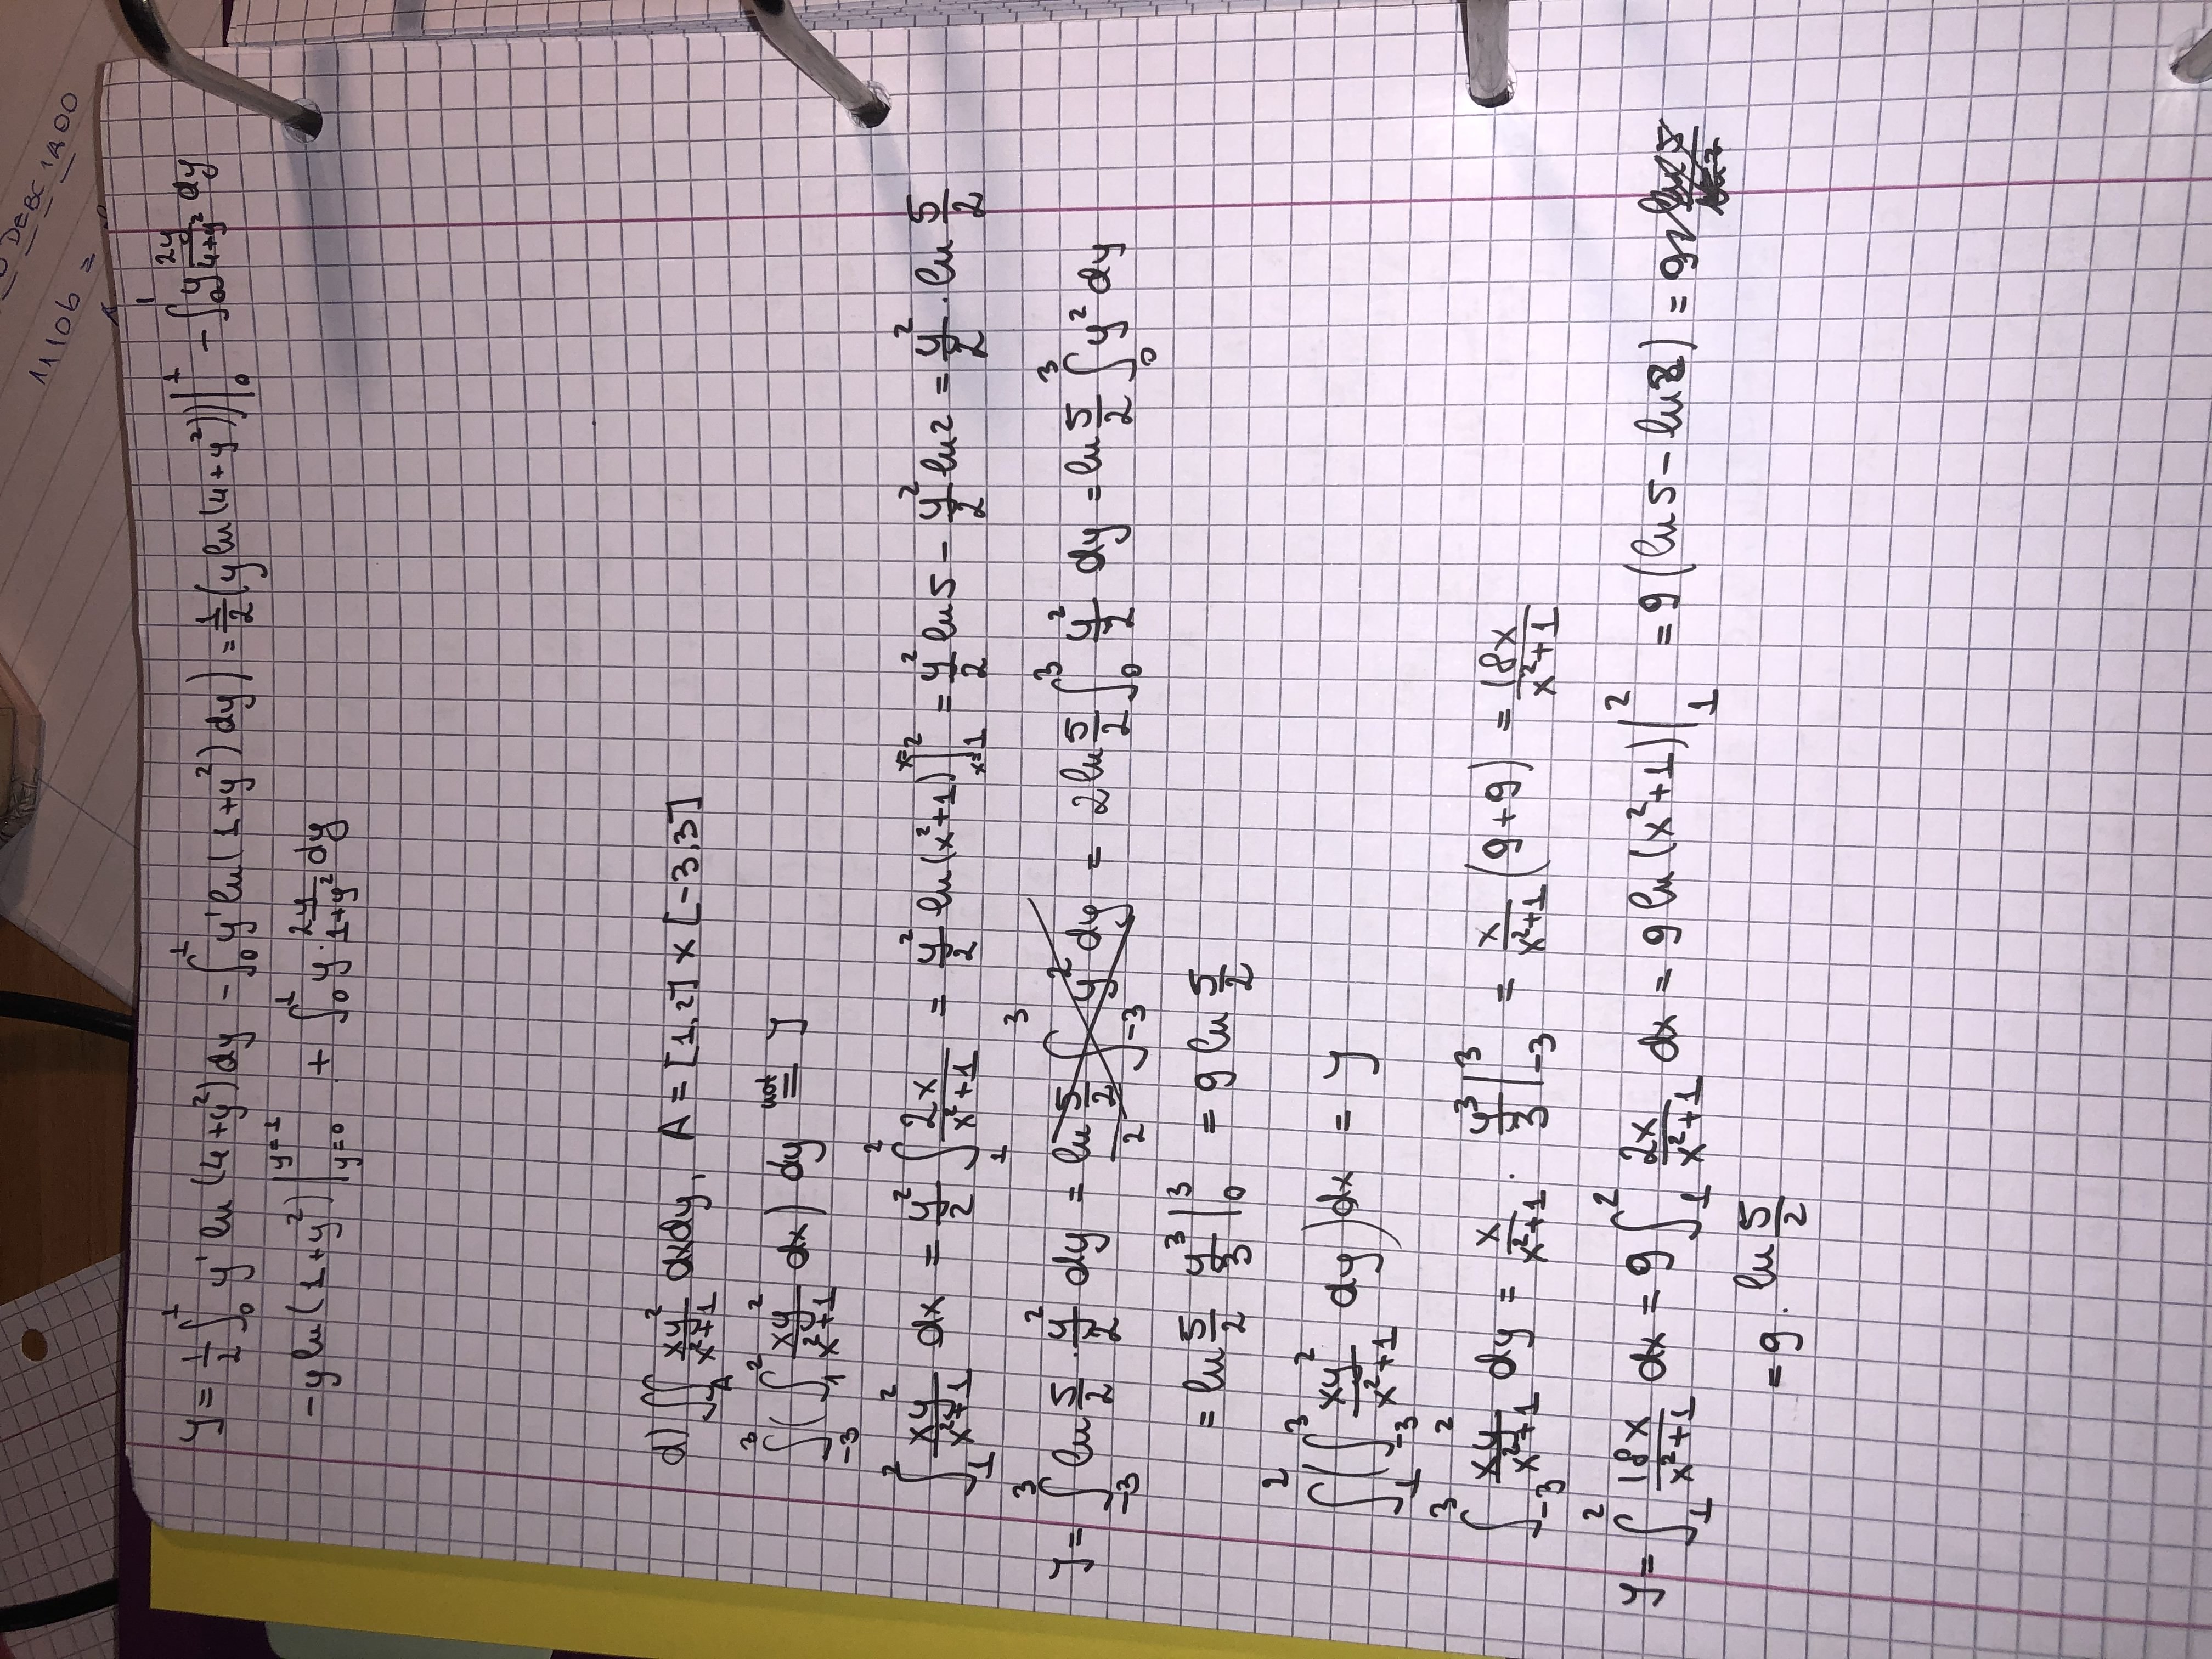 DEBC 1A00
1110b =
y = 1/2 ∫₀¹ y' ln(4+y²) dy - ∫₀¹ y' ln(1+y²) dy) = 1/2 (y ln(4+y²))|₀¹ - ∫₀¹ y 2y/4+y² dy
- y ln(1+y²) |y=0 y=1 + ∫₀¹ y · 2y/1+y² dy
d) ∬A xy²/x²+1 dxdy, A = [1,2] × [-3,3]
∫₋₃³ (∫₁² xy²/x²+1 dx) dy not= J
∫₁² xy²/x²+1 dx = y²/2 ∫₁² 2x/x²+1 = y²/2 ln(x²+1)|x=1 x=2 = y²/2 ln5 - y²/2 ln2 = y²/2 · ln 5/2
J = ∫₋₃³ ln 5/2 · y²/2 dy = ln 5/2 /2 ∫₋₃³ y² dy = 2 ln 5/2 ∫₀³ y²/2 dy = ln 5/2 ∫₀³ y² dy
= ln 5/2 y³/3 |₀³ = 9 ln 5/2
∫₁² (∫₋₃³ xy²/x²+1 dy) dx = J
∫₋₃³ xy²/x²+1 dy = x/x²+1 · y³/3 |₋₃³ = x/x²+1 (9+9) = 18x/x²+1
J = ∫₁² 18x/x²+1 dx = 9 ∫₁² 2x/x²+1 dx = 9 ln(x²+1)|₁² = 9 (ln5 - ln2) = 9
= 9 · ln 5/2